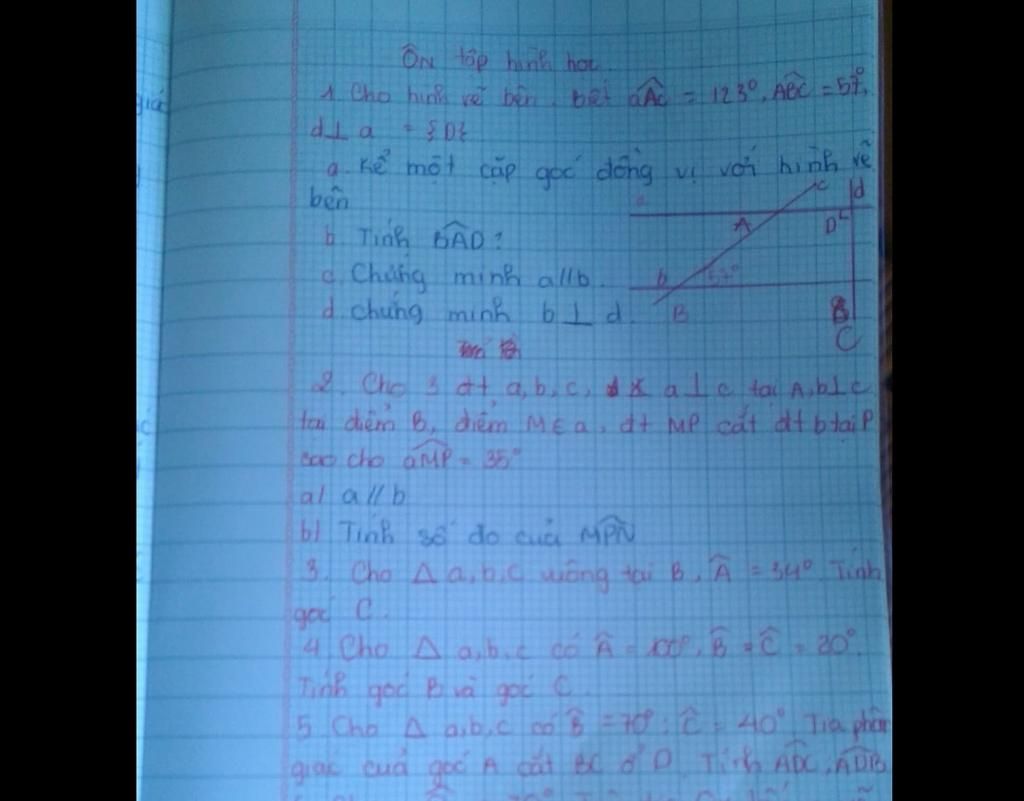 Ôn tập hình học
1. Cho hình vẽ bên. Biết aÂc = 123°, AB̂C = 57°,
d⊥ a = {D}
a. Kể một cặp góc đồng vị với hình vẽ
bên
b. Tính BÂD?
c. Chứng minh a//b.
d. chứng minh b ⊥ d.
a
c
d
A
D
b
57°
B
C
2. Cho 3 đt a, b, c, a ⊥ c tại A, b⊥c
tại điểm B, điểm M ∈ a, đt MP cắt đt b tại P
sao cho aM̂P = 35°
a/ a // b
b/ Tính số đo của MP̂N
3. Cho Δ a,b,c vuông tại B, Â = 34° Tính
góc C.
4 Cho Δ a,b,c có Â = 100°, B̂ = Ĉ = 20°.
Tính góc B và góc C.
5 Cho Δ a,b,c có B̂ = 70°; Ĉ = 40° Tia phân
giác của góc A cắt BC ở D. Tính AD̂C, AD̂B